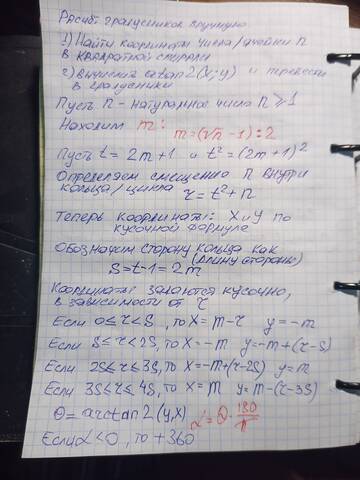 Расчёт градусников вручную
1) Найти координаты числа/ячейки n
в квадратной спирали
2) вычислить atan2(x;y) и перевести
в градусники
Пусть n - натуральное число n ≥ 1
Находим m: m=(√n-1):2
Пусть t = 2m+1 и t²=(2m+1)²
Определяем смещение n внутри
кольца/цикла τ=t²+n
Теперь координаты: X и y по
кусочной формуле
Обозначим сторону кольца как
S=t-1=2m (длину стороны)
Координаты задаются кусочно,
в зависимости от τ
Если 0≤τ<S, то X=m-τ y=-m
Если S≤τ<2S, то X=-m y=-m+(τ-S)
Если 2S≤τ≤3S, то X=-m+(τ-2S) y=m
Если 3S≤τ≤4S, то X=m y=m-(τ-3S)
Θ=arctan2(y,x) α=Θ·180/π
Если α<0, то +360